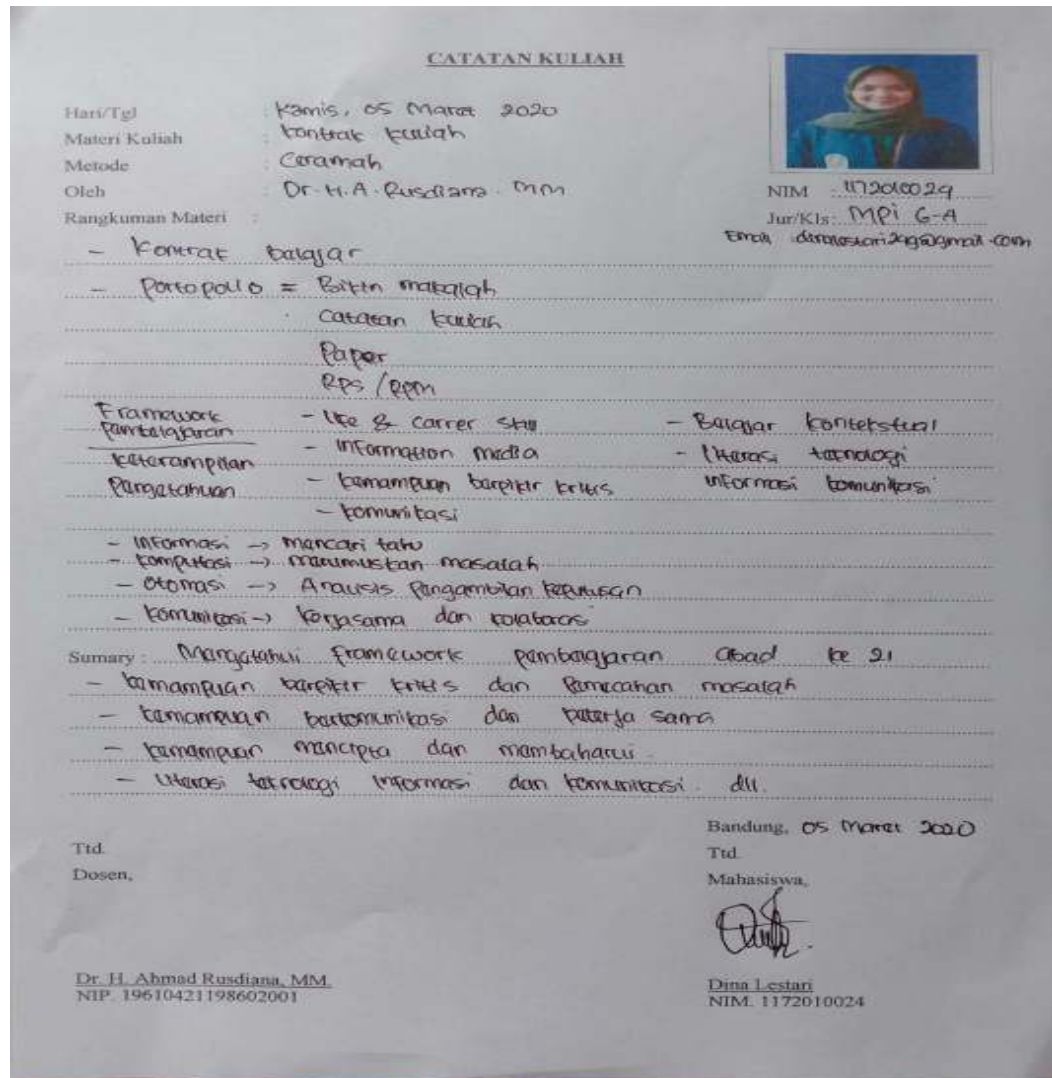 CATATAN KULIAH
Hari/Tgl : Kamis, 05 Maret 2020
Materi Kuliah : kontrak kuliah
Metode : Ceramah
Oleh : Dr. H. A. Rusdiana. MM
Rangkuman Materi :
NIM : 1172010024
Jur/Kls: MPi 6-A
Email :
- Kontrat belajar
- Portopolio = Bikin makalah
Catatan kuliah
Paper
RPS / RPM
Framework pembelajaran
keterampilan
Pengetahuan
- Life & carrer skill
- Information media
- kemampuan berpikir kritis
- komunikasi
- Belajar kontekstual
- literasi teknologi
informasi komunikasi
- Informasi -> mencari tahu
- komputasi -> merumuskan masalah
- Otomasi -> Analisis pengambilan keputusan
- komunikasi -> kerjasama dan kolaborasi
Sumary : Mengetahui framework pembelajaran abad ke 21
- kemampuan berpikir kritis dan pemecahan masalah
- kemampuan berkomunikasi dan bekerja sama
- kemampuan mencipta dan membaharui.
- literasi teknologi informasi dan komunikasi. dll.
Bandung, 05 Maret 2020
Ttd.
Dosen,
Ttd.
Mahasiswa,
Dr. H. Ahmad Rusdiana, MM.
NIP. 19610421198602001
Dina Lestari
NIM. 1172010024